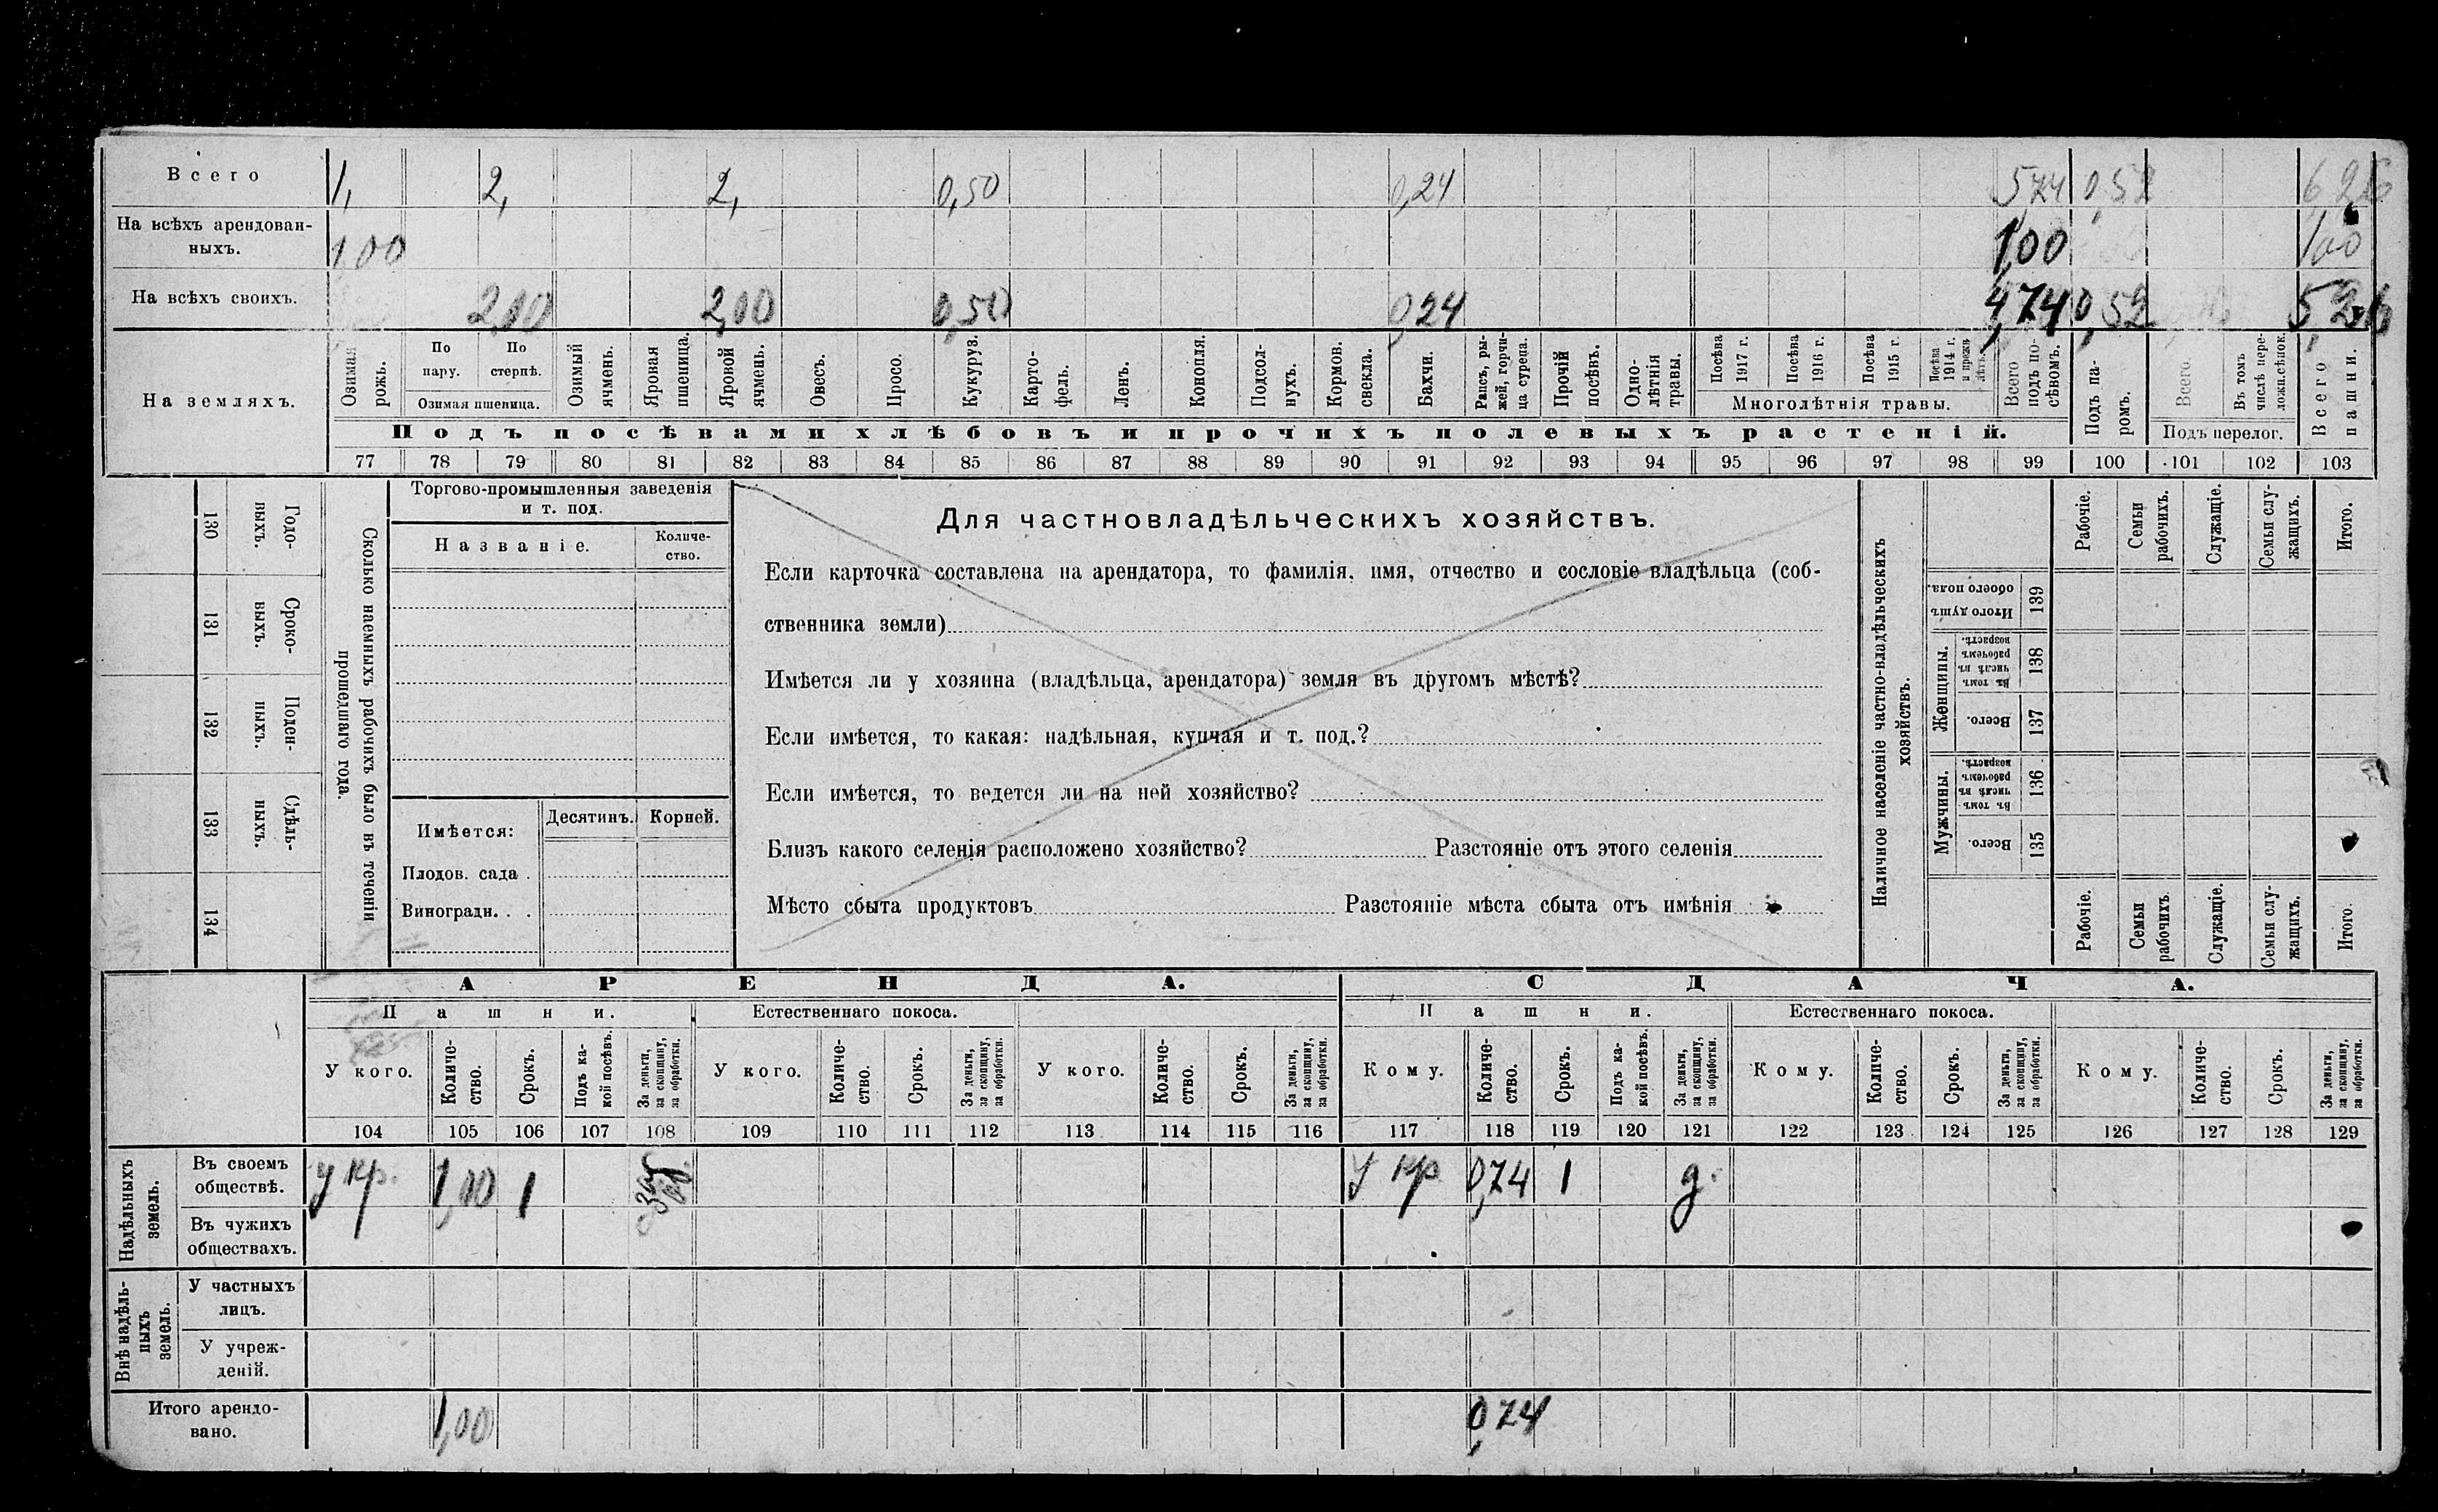 Всего 1, 2, 2, 0,50 0,24 5,74 0,52 6,26
На всѣхъ арендован-
ныхъ. 1 00 1,00 1,00
На всѣхъ своихъ. 2,00 2,00 0,50 0,24 4,74 0,52 5,26
На земляхъ.
Озимая рожь.
По пару.
По стернѣ.
Озимая пшеница.
Озимый ячмень.
Яровая пшеница.
Яровой ячмень.
Овесъ.
Просо.
Кукуруз.
Карто-
фель.
Ленъ.
Конопля.
Подсол-
нухъ.
Кормов.
свекла.
Бахчи.
Рапсъ, ры-
жей, горчи-
ца сурепа.
Прочій
посѣвъ.
Одно-
лѣтнія
травы.
Посѣва
1917 г.
Посѣва
1916 г.
Посѣва
1915 г.
Посѣва
1914 г.
и прежн
лѣтъ.
Многолѣтнія травы.
Всего
подъ по-
сѣвомъ.
Подъ па-
ромъ.
Всего.
Въ томъ
числѣ пере-
ложн.сѣнок.
Подъ перелог.
Всего
пашни.
Подъ посѣвами хлѣбовъ и прочихъ полевыхъ растеній.
77 78 79 80 81 82 83 84 85 86 87 88 89 90 91 92 93 94 95 96 97 98 99 100 101 102 103
130 Годо-
выхъ.
131 Сроко-
выхъ.
132 Поден-
ныхъ.
133 Сдѣль-
ныхъ.
134
Сколько наемныхъ рабочихъ было въ теченіи
прошедшаго года.
Торгово-промышленныя заведенія
и т. под.
Названіе.
Количе-
ство.
Имѣется:
Десятинъ.
Корней.
Плодов. сада .
Виноградн. . .
Для частновладѣльческихъ хозяйствъ.
Если карточка составлена на арендатора, то фамилія, имя, отчество и сословіе владѣльца (соб-
ственника земли)
Имѣется ли у хозяина (владѣльца, арендатора) земля въ другомъ мѣстѣ?
Если имѣется, то какая: надѣльная, купчая и т. под.?
Если имѣется, то ведется ли на ней хозяйство?
Близъ какого селенія расположено хозяйство? Разстояніе отъ этого селенія
Мѣсто сбыта продуктовъ Разстояніе мѣста сбыта отъ имѣнія
Наличное населеніе частно-владѣльческихъ
хозяйствъ.
Рабочіе.
Семьи
рабочихъ.
Служащіе.
Семьи слу-
жащихъ.
Итого.
Итого душъ
обоего пола.
139
Женщины.
Въ томъ
числѣ въ
рабочемъ
возрастѣ.
138
Всего.
137
Мужчины.
Въ томъ
числѣ въ
рабочемъ
возрастѣ.
136
Всего.
135
Рабочіе.
Семьи
рабочихъ
Служащіе.
Семьи слу-
жащихъ.
Итого.
АРЕНДА. СДАЧА.
Пашни. Естественнаго покоса. Пашни. Естественнаго покоса.
У кого.
Количе-
ство.
Срокъ.
Подъ ка-
кой посѣвъ.
За деньги,
за скопщину,
за обработки.
У кого.
Количе-
ство.
Срокъ.
За деньги,
за скопщину,
за обработки.
У кого.
Количе-
ство.
Срокъ.
За деньги,
за скопщину,
за обработки.
Кому.
Количе-
ство.
Срокъ.
Подъ ка-
кой посѣвъ.
За деньги,
за скопщину,
за обработки.
Кому.
Количе-
ство.
Срокъ.
За деньги,
за скопщину,
за обработки.
Кому.
Количе-
ство.
Срокъ.
За деньги,
за скопщину,
за обработки.
104 105 106 107 108 109 110 111 112 113 114 115 116 117 118 119 120 121 122 123 124 125 126 127 128 129
Надѣльныхъ
земель.
Въ своемъ
обществѣ. У кр. 1,00 1 У кр 0,74 1 д.
Въ чужихъ
обществахъ.
Внѣ надѣль-
ныхъ
земель.
У частныхъ
лицъ.
У учреж-
деній.
Итого арендо-
вано. 1,00 0,74